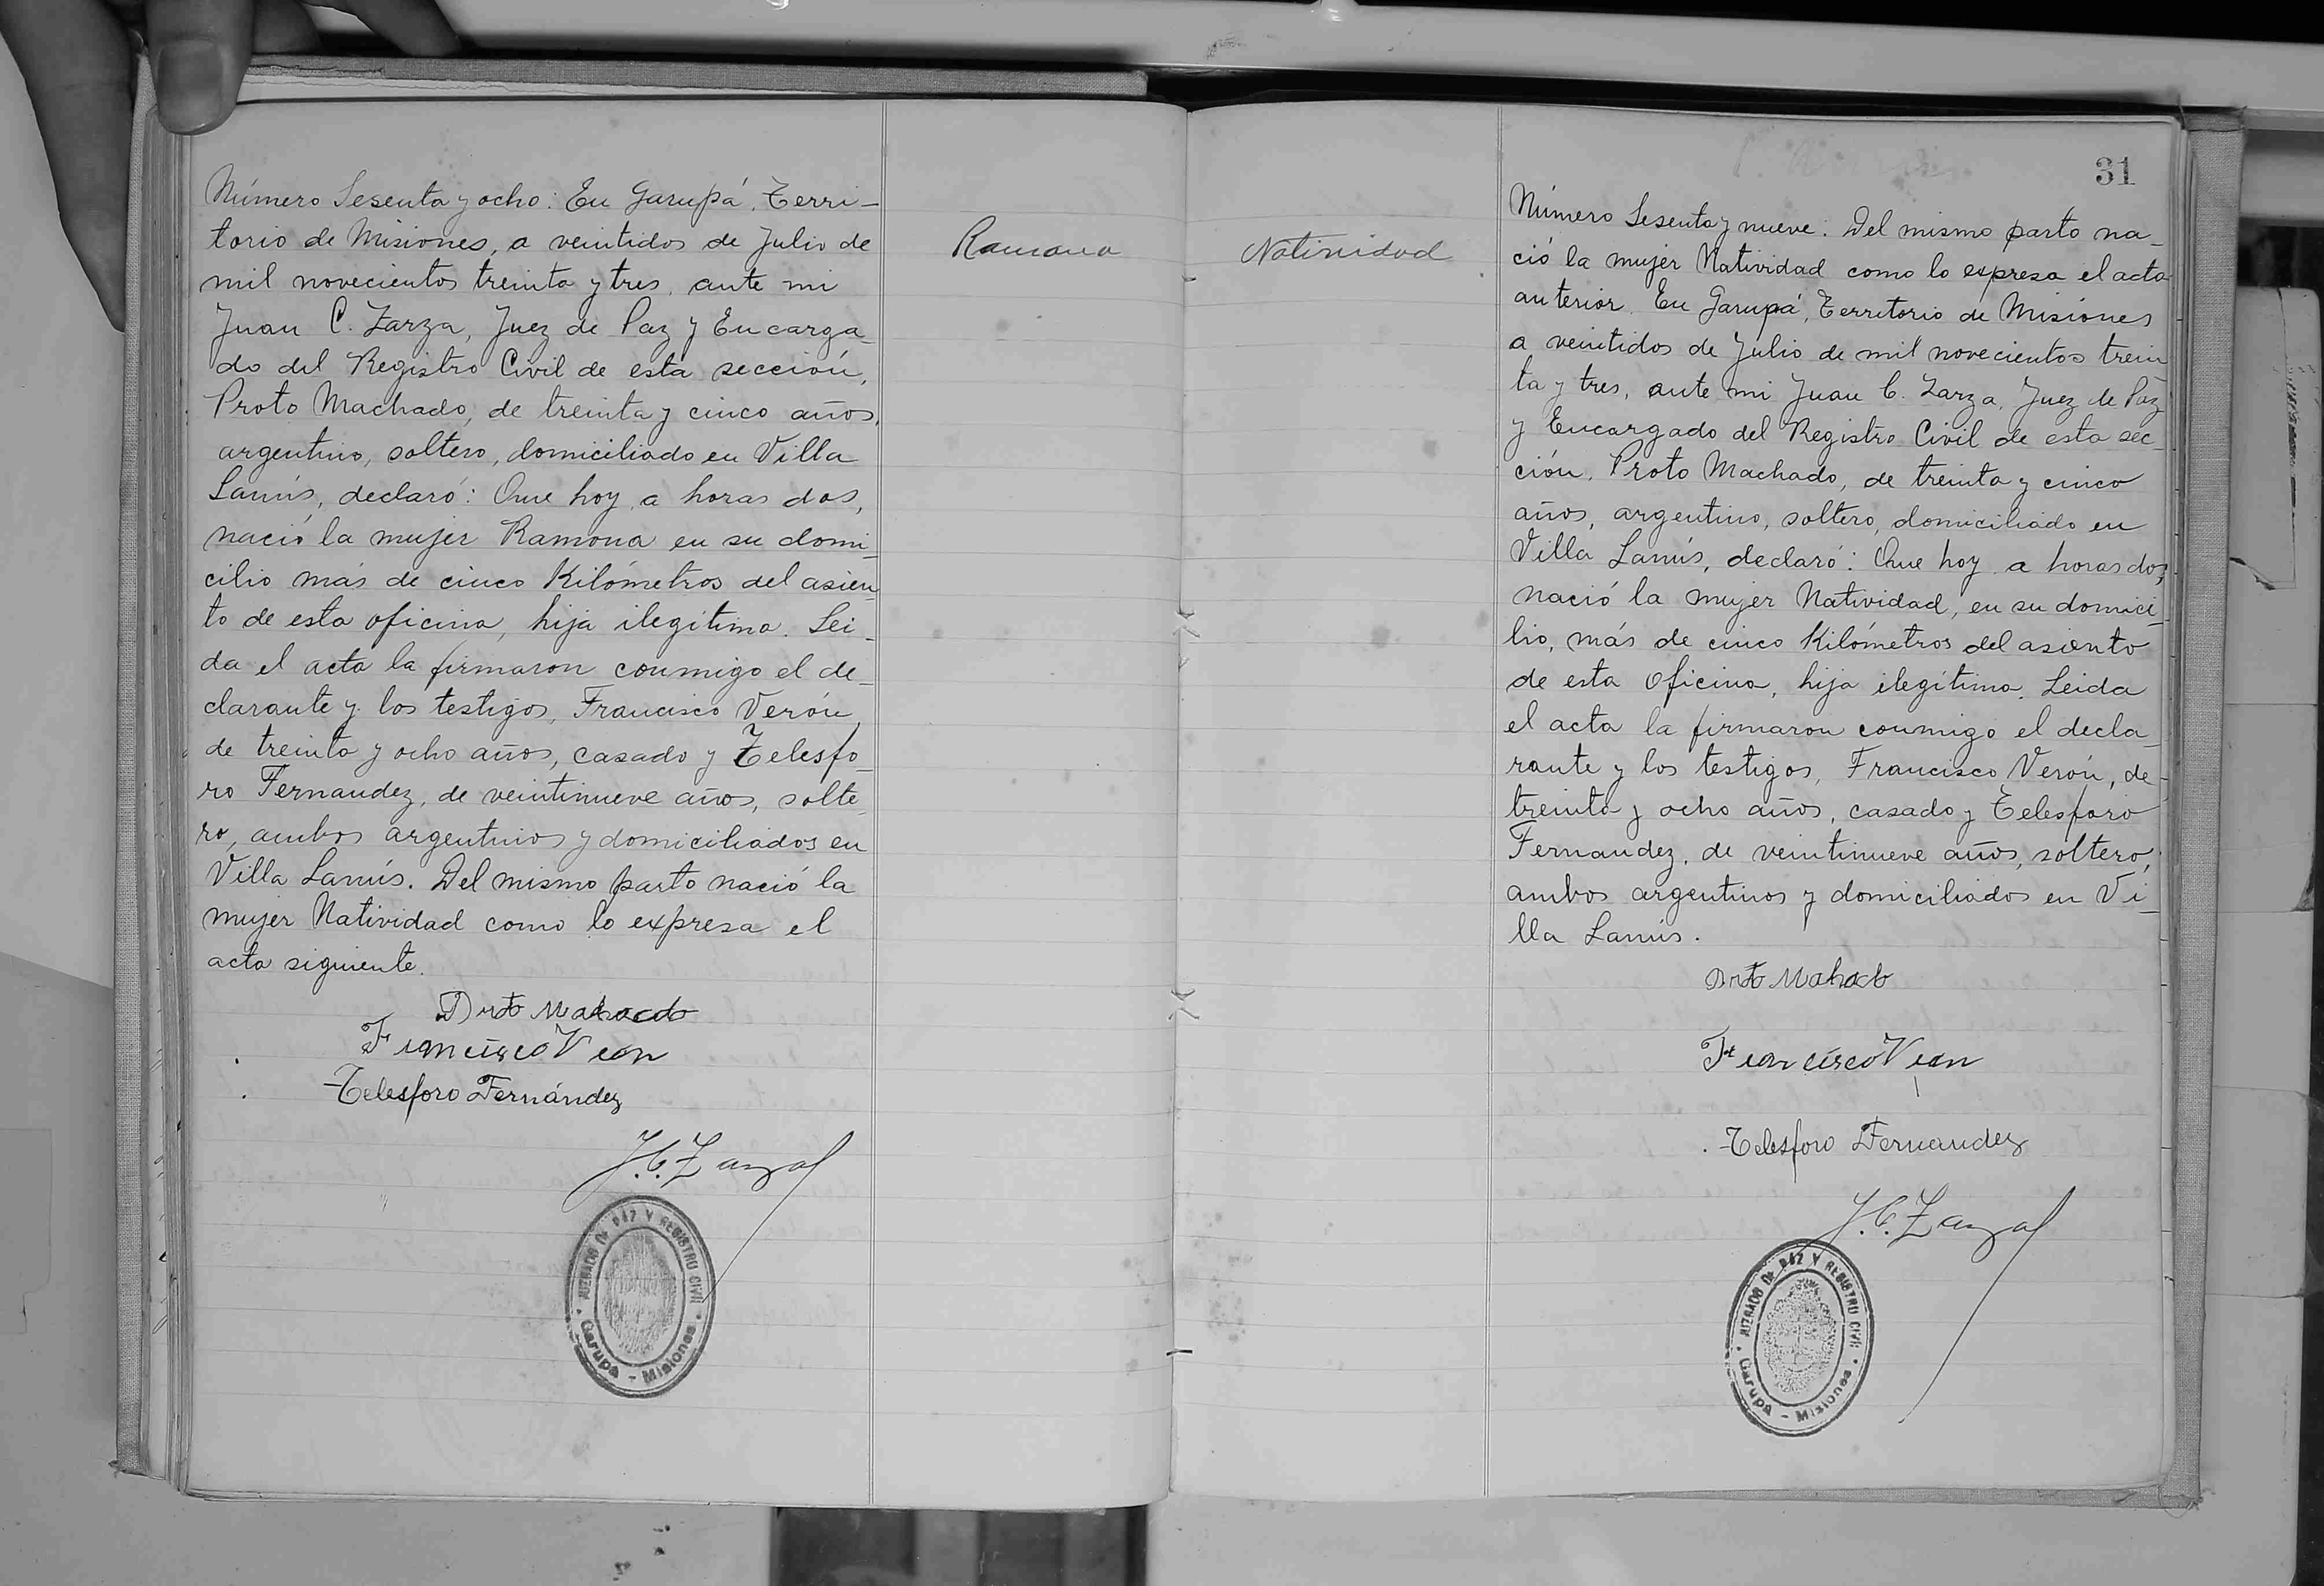 Número Sesenta y ocho: En Garupá, Terri-
torio de Misiones, a veintidos de Julio de
mil novecientos treinta y tres, ante mi
Juan C. Zarza, Juez de Paz y Encarga-
do del Registro Civil de esta sección,
Proto Machado, de treinta y cinco años,
argentino, soltero, domiciliado en Villa
Lanús, declaró: Que hoy a horas dos,
nació la mujer Ramona en su domi-
cilio más de cinco Kilómetros del asien-
to de esta oficina, hija ilegítima. Lei-
da el acta la firmaron conmigo el de-
clarante y los testigos, Francisco Verón,
de treinta y ocho años, casado y Telesfo-
ro Fernandez, de veintinueve años, solte-
ro, ambos argentinos y domiciliados en
Villa Lanús. Del mismo parto nació la
mujer Natividad como lo expresa el
acta siguiente.
Proto Machado
Francisco Veron
Telesforo Fernández
J. C. Zarza
JUZGADO DE PAZ Y REGISTRO CIVIL
Garupá - Misiones
Ramona
Natividad
31
Número Sesenta y nueve: Del mismo parto na-
ció la mujer Natividad como lo expresa el acta
anterior. En Garupá, Territorio de Misiones
a veintidos de Julio de mil novecientos trein
ta y tres, ante mi Juan C. Zarza, Juez de Paz
y Encargado del Registro Civil de esta sec-
ción, Proto Machado, de treinta y cinco
años, argentino, soltero, domiciliado en
Villa Lanús, declaró: Que hoy a horas dos,
nació la mujer Natividad, en su domici-
lio, más de cinco Kilómetros del asiento
de esta Oficina, hija ilegítima. Leida
el acta la firmaron conmigo el decla-
rante y los testigos, Francisco Verón, de
treinta y ocho años, casado y Telesforo
Fernandez, de veintinueve años, soltero,
ambos argentinos y domiciliados en Vi-
lla Lanús.
Proto Mahado
Francisco Veron
Telesforo Fernandez
J. C. Zarza
JUZGADO DE PAZ Y REGISTRO CIVIL
Garupá - Misiones